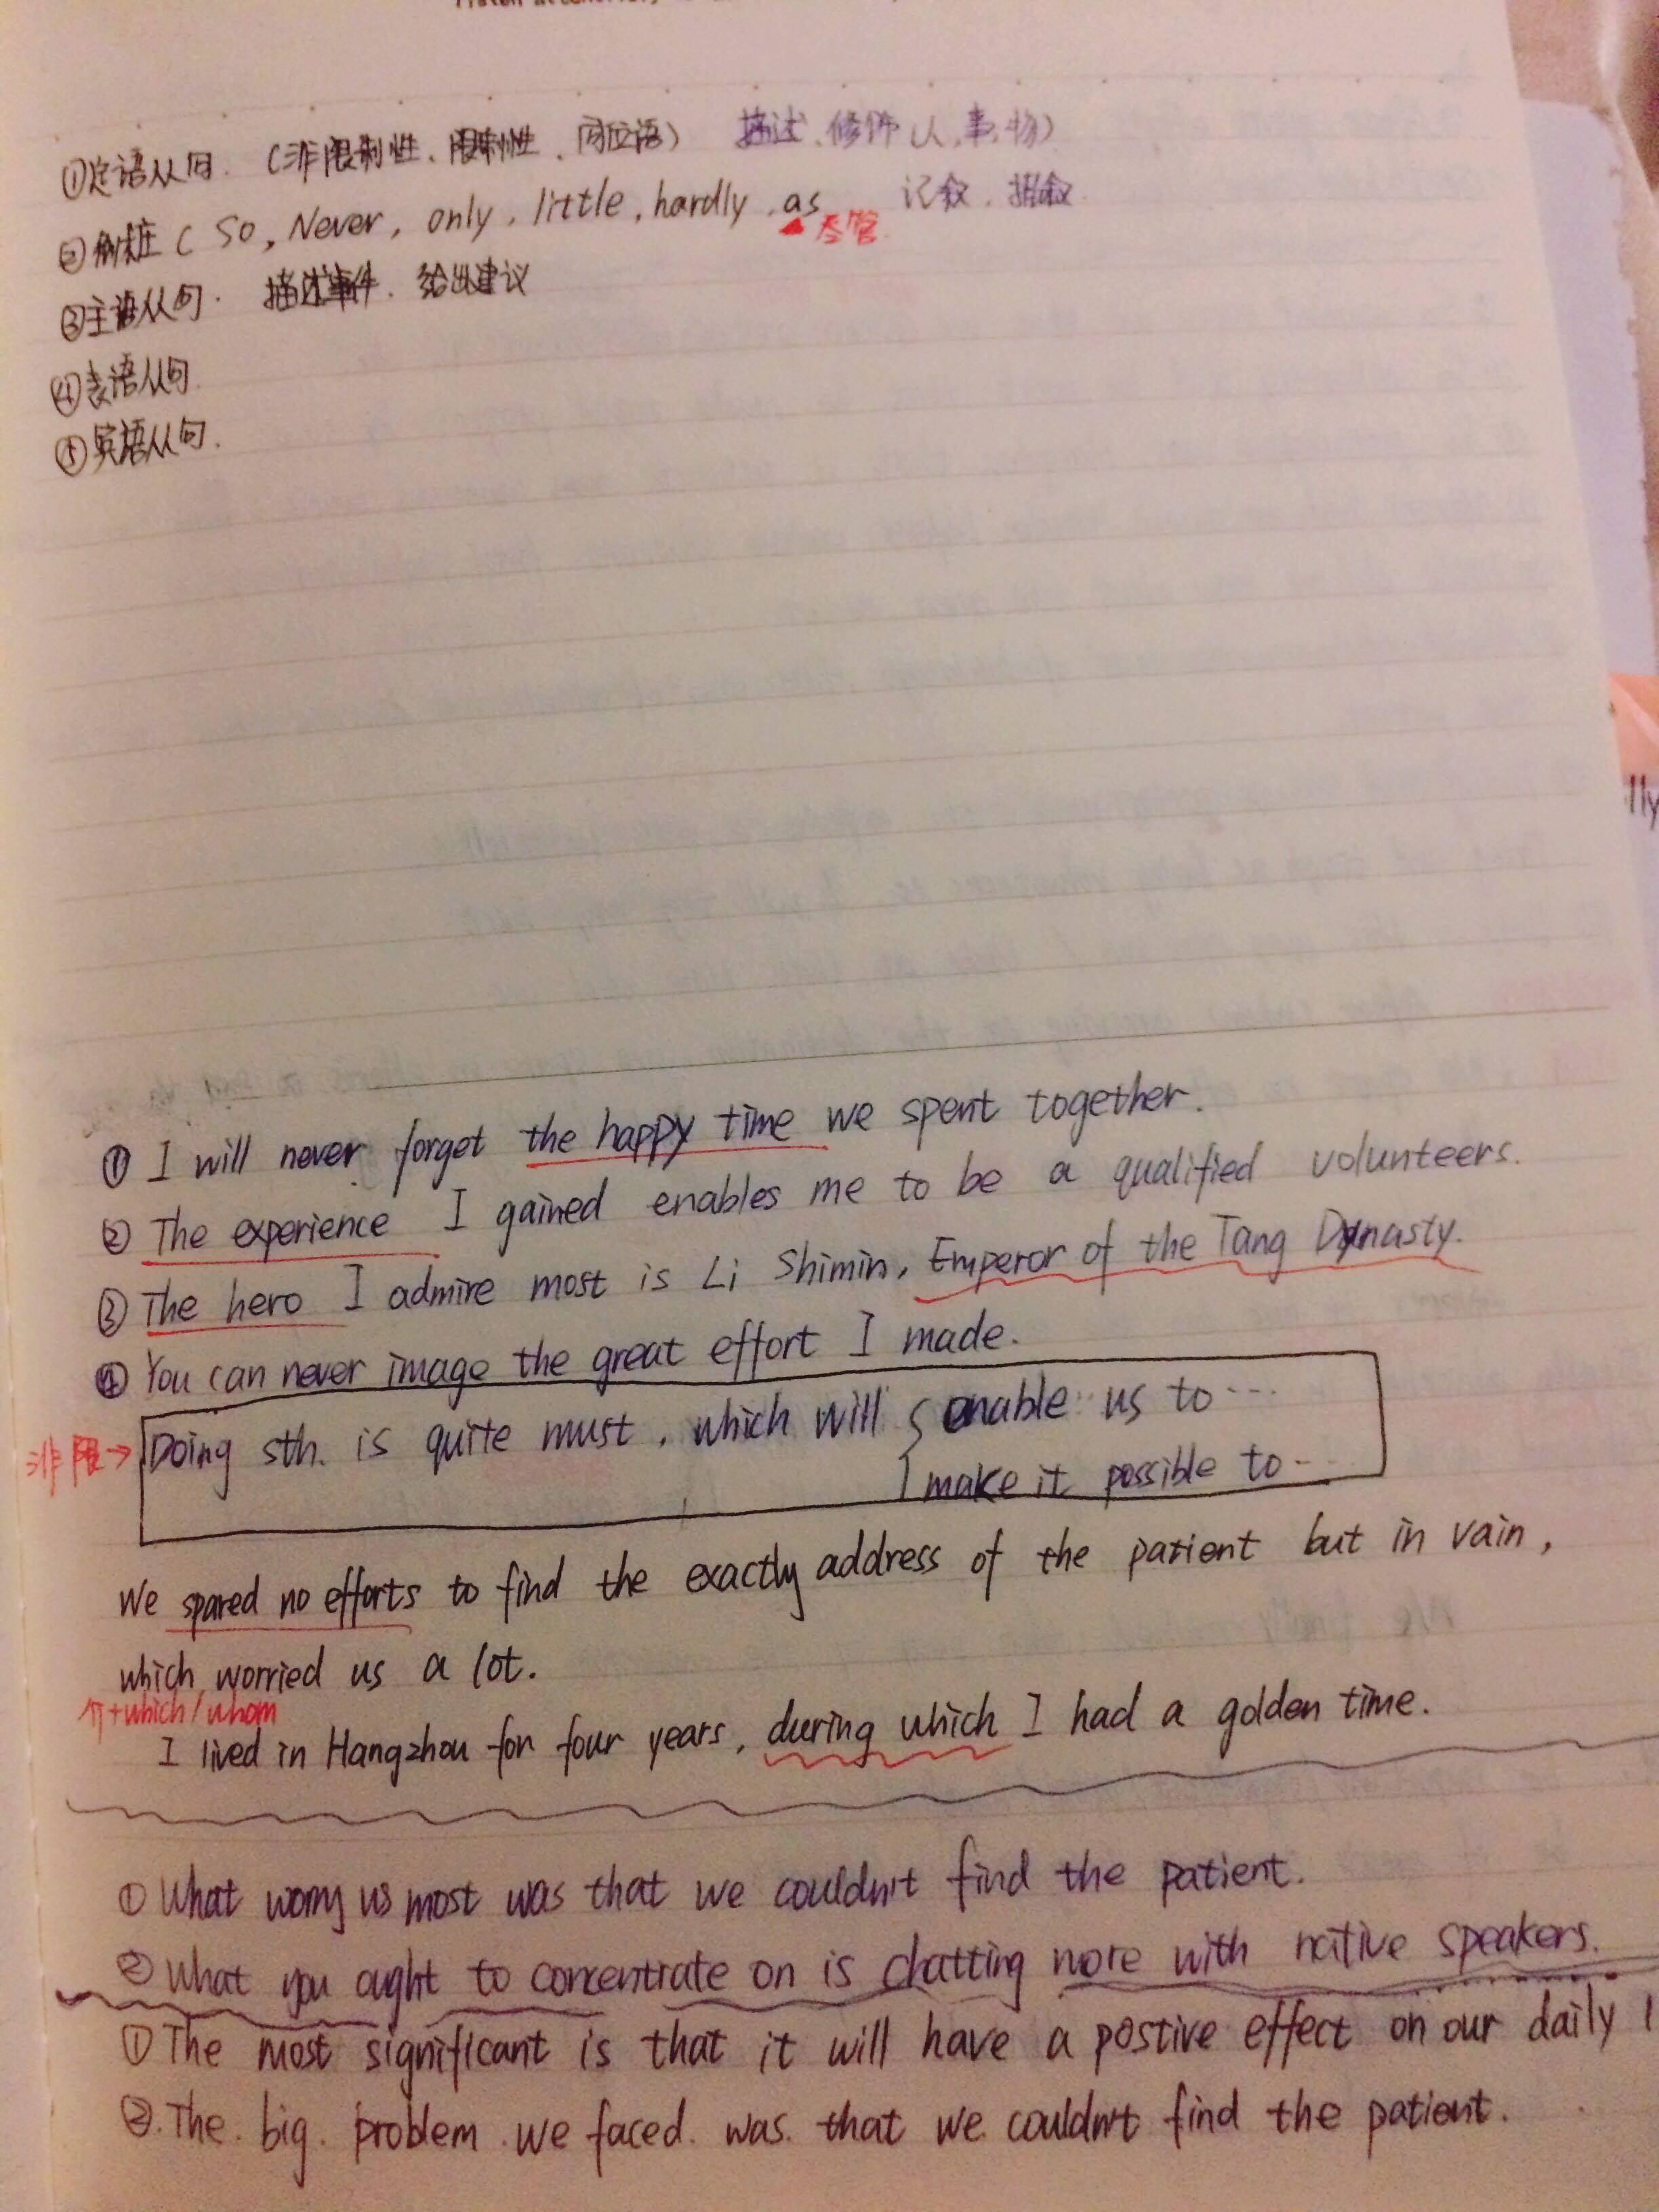 ①定语从句. (非限制性、限制性、同位语) 描述、修饰(人,事,物)
②倒装( So, Never, only, little, hardly, as 尽管 记叙. 插叙
③主语从句. 描述事件. 给出建议
④表语从句.
⑤宾语从句.
① I will never forget the happy time we spent together.
② The experience I gained enables me to be a qualified volunteers.
③ The hero I admire most is Li Shimin, Emperor of the Tang Dynasty.
④ You can never image the great effort I made.
非限→ Doing sth. is quite must, which will { enable us to...
make it possible to...
We spared no efforts to find the exactly address of the patient but in vain,
which worried us a lot.
介+which/whom
I lived in Hangzhou for four years, during which I had a golden time.
① What worry us most was that we couldn't find the patient.
② What you ought to concentrate on is chatting more with native speakers.
① The most significant is that it will have a postive effect on our daily l
②. The big problem we faced was that we couldn't find the patient.
lly